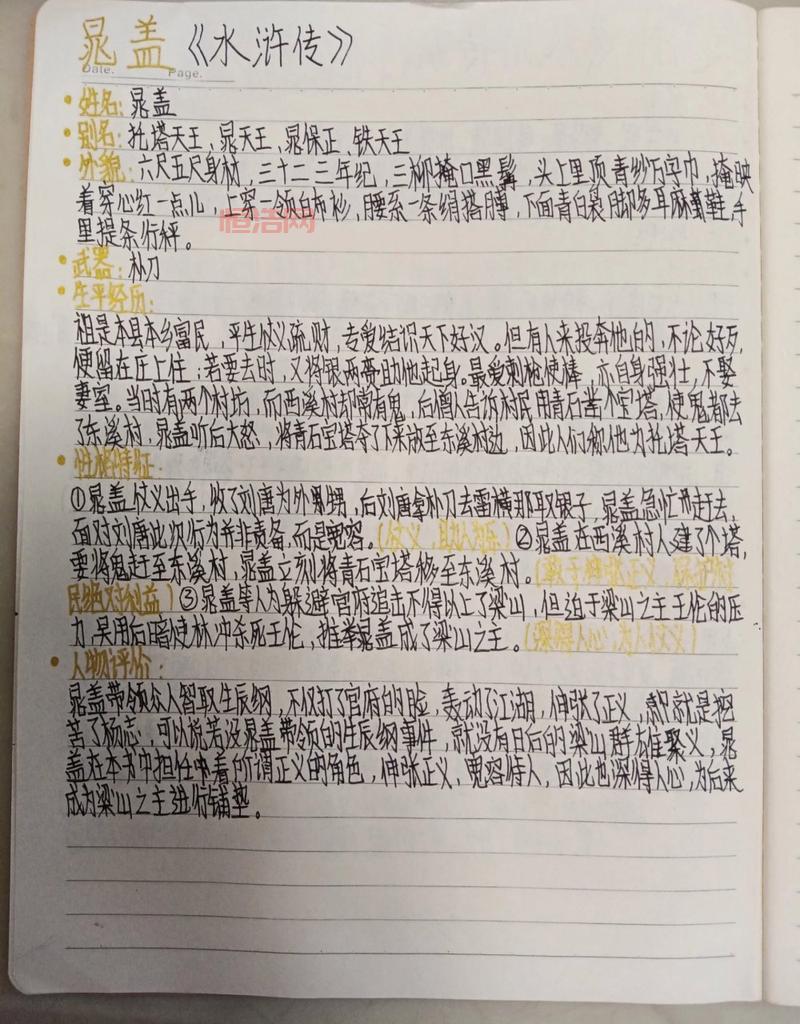 晁盖《水浒传》
Date. Page.
• 姓名: 晁盖
• 别名: 托塔天王、晁天王、晁保正、铁天王
• 外貌: 六尺五尺身材，三十二三年纪，三柳掩口黑髯，头上里顶青纱万字巾，掩映
着穿心红一点儿，上穿一领白布衫，腰系一条绢搭膊，下面青白袅脚多耳麻鞋，手
里提条行秤。
恒洁网
• 武器: 朴刀
• 生平经历:
祖是本县本乡富民，平生仗义疏财，专爱结识天下好汉。但有人来投奔他的，不论好歹，
便留在庄上住；若要去时，又将银两赍助他起身。最爱刺枪使棒，亦自身强壮，不娶
妻室。当时有两个村坊，而西溪村却常有鬼，后僧人告诉村民用青石凿个宝塔，使鬼都去
了东溪村，晁盖听后大怒，将青石宝塔夺了下来放至东溪村边，因此人们称他为托塔天王。
• 性格特征:
①晁盖仗义出手，收了刘唐为外男甥，后刘唐拿朴刀去雷横那取银子，晁盖急忙赶去，
面对刘唐此次行为并非责备，而是宽容。(仗义，助人为乐) ②晁盖在西溪村人建了个塔，
要将鬼赶至东溪村，晁盖立刻将青石宝塔移至东溪村。(敢于伸张正义，保护村
民绝对利益) ③晁盖等人为躲避官府追击不得以上了梁山，但迫于梁山之主王伦的压
力，吴用后暗使林冲杀死王伦，推举晁盖成了梁山之主。(深得人心，为人仗义)
• 人物评价:
晁盖带领众人智取生辰纲，不仅打了官府的脸，轰动了江湖，伸张了正义，就是挖
苦了杨志，可以说若没晁盖带领的生辰纲事件，就没有日后的梁山群雄聚义，晁
盖在本书中担任着所谓正义的角色，伸张正义，宽容待人，因此也深得人心，为后来
成为梁山之主进行铺垫。